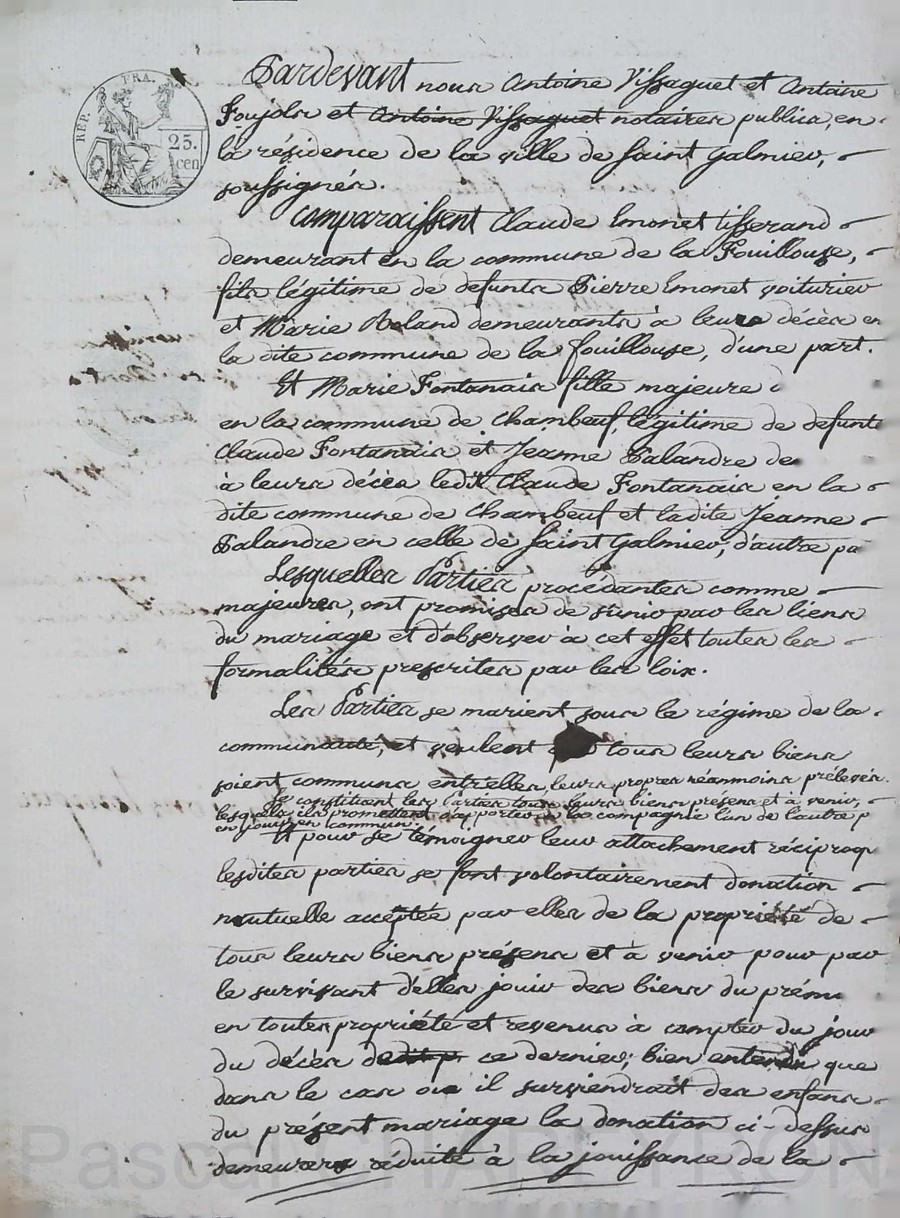 RÉP. FRA.
25.
cen
Pardevant nous Antoine Vissaguet et Antoine
Poujols et Antoine Vissaguet notaires publics, en
la résidence de la ville de Saint Galmier,
soussignés.
Comparaissent Claude Emonet tisserand
demeurant en la commune de la Fouillouze,
fils légitime de defunts Pierre Emonet voiturier
et Marie Roland demeurants à leurs décès en
la dite commune de la fouillouse, d'une part.
Et Marie Fontanais fille majeure d
en la commune de Chambeuf, légitime de defunts
Claude Fontanais et Jeanne Palandre de
à leurs décès ledit Claude Fontanais en la
dite commune de Chambeuf et ladite Jeanne
Palandre en celle de Saint Galmier, d'autre pa
Lesquelles Parties procédantes comme
majeures, ont promises de s'unir par les liens
du mariage et d'observer à cet effet toutes les
formalités prescrites par les loix.
Les Parties se marient sous le régime de la
communauté, et veulent tous leurs biens
soient communs entr'elles, leurs propres néanmoins prélevés.
Se constituent les Parties tous leurs biens présens et à venir,
lesquels ils promettent d'apporter à la compagnie l'un de l'autre p
en jouir en commun.
Et pour se témoigner leur attachement réciproq
lesdites parties se font volontairement donation
mutuelle acceptée par elles de la propriété de
tous leurs biens présens et à venir pour par
le survivant d'elles jouir des biens du prém
en toutes propriété et revenus à compter du jour
du décès dedit p. ce dernier; bien entendu que
dans le cas ou il surviendrait des enfans
du présent mariage la donation ci-dessus
demeurera réduite à la jouissance de la
Pascal CHARTRON